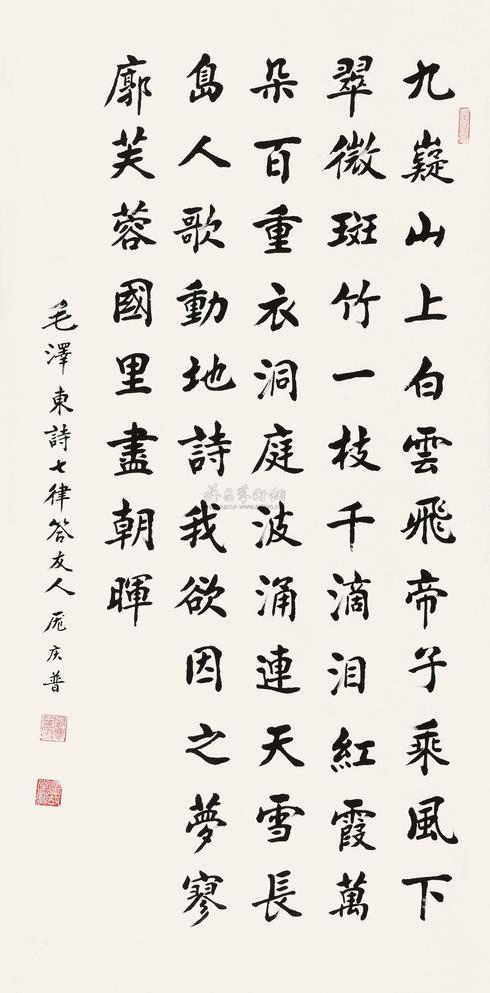 九嶷山上白雲飛帝子乘風下
翠微斑竹一枝千滴泪紅霞萬
朵百重衣洞庭波涌連天雪長
島人歌動地詩我欲因之夢寥
廓芙蓉國里盡朝暉
毛澤東詩七律答友人 庞庆普